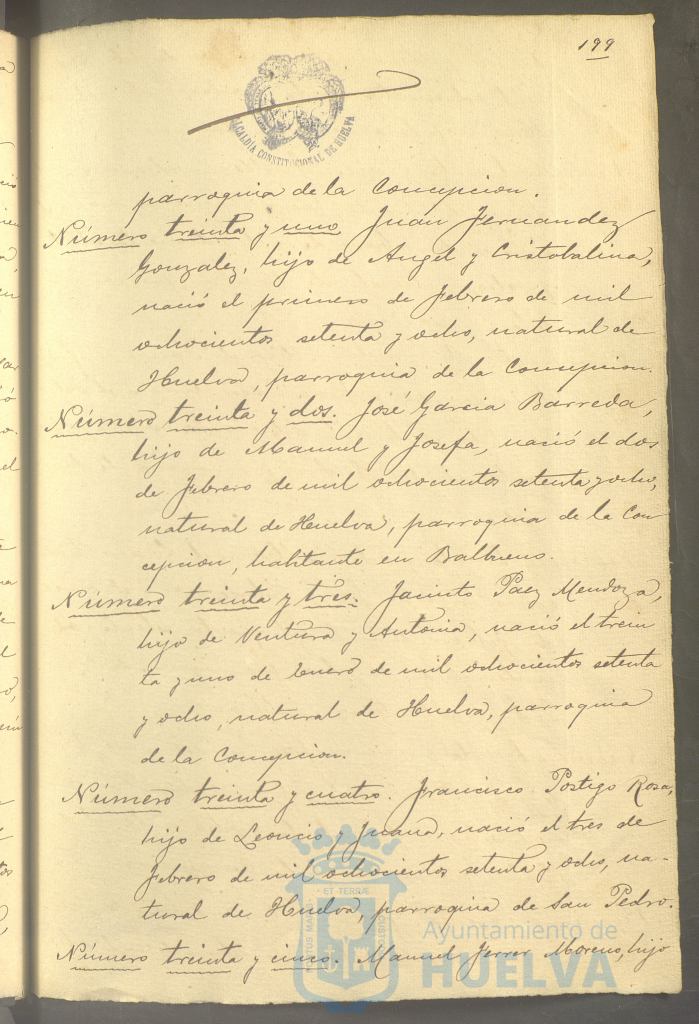 199
ALCALDIA CONSTITUCIONAL DE HUELVA
parroquia de la Concepcion.
Número treinta y uno Juan Fernandez
Gonzalez, hijo de Angel y Cristobalina,
nació el primero de Febrero de mil
ochocientos setenta y ocho, natural de
Huelva, parroquia de la Concepcion.
Número treinta y dos. José Garcia Barreda,
hijo de Manuel y Josefa, nació el dos
de Febrero de mil ochocientos setenta y ocho,
natural de Huelva, parroquia de la Con
cepcion, habitante en Balbueno.
Número treinta y tres. Jacinto Paez Mendoza,
hijo de Ventura y Antonia, nació el trein
ta y uno de Enero de mil ochocientos setenta
y ocho, natural de Huelva, parroquia
de la Concepcion.
Número treinta y cuatro. Francisco Postigo Rosa,
hijo de Leoncio y Juana, nació el tres de
Febrero de mil ochocientos setenta y ocho, na-
tural de Huelva, parroquia de San Pedro.
Número treinta y cinco. Manuel Ferrer Moreno, hijo
Ayuntamiento de
HUELVA